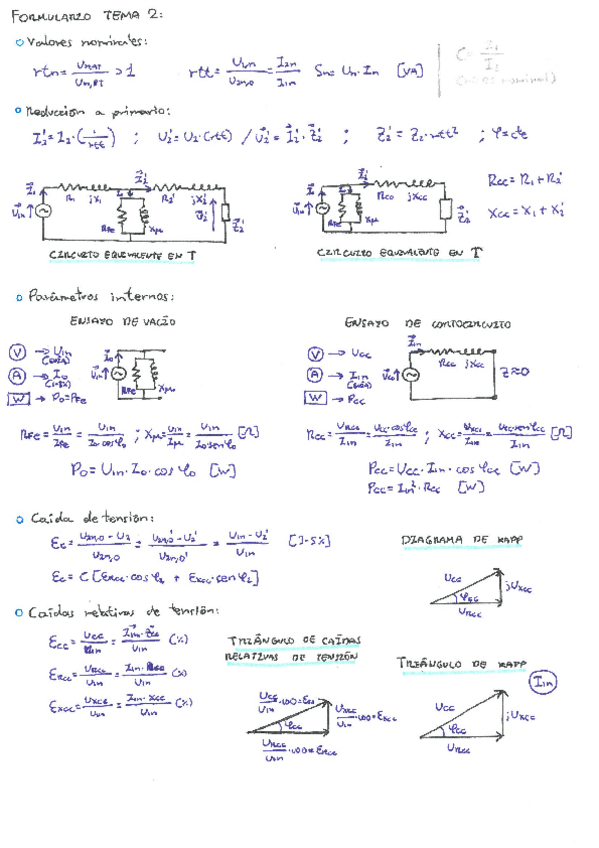 FORMULARIO TEMA 2:
Valores nominales:
rtn = U_nAT / U_n,BT > 1    rtt = U_1n / U_2n,0 = I_2n / I_1n    Sn = Un · In [VA]
C = I_2 / I_2
Reducción a primario:
I_2' = I_2 · (1/rtt) ; U_2' = U_2 · (rtt) / U_2' = I_2' · Z_2' ; Z_2' = Z_2 · rtt² ; φ = cte
I_1 R_1 jX_1 I_0 I_2' R_2' jX_2' U_1n R_Fe X_μ U_2' Z_2'
I_1 I_0 I_2' R_cc jX_cc U_1n R_Fe X_μ Z_2'
R_cc = R_1 + R_2'
X_cc = X_1 + X_2'
CIRCUITO EQUIVALENTE EN T
CIRCUITO EQUIVALENTE EN T
Parámetros internos:
ENSAYO DE VACÍO
V → U_1n
A → I_0
W → P_0 = P_Fe
I_0 U_1n R_Fe X_μ
R_Fe = U_1n / I_Fe = U_1n / I_0 cosφ_0 ; X_μ = U_1n / I_μ = U_1n / I_0 senφ_0 [Ω]
P_0 = U_1n · I_0 · cosφ_0 [W]
ENSAYO DE CORTOCIRCUITO
V → U_cc
A → I_1n
W → P_cc
I_1n U_cc R_cc jX_cc Z≈0
R_cc = U_Rcc / I_1n = U_cc · cosφ_cc / I_1n ; X_cc = U_Xcc / I_1n = U_cc senφ_cc / I_1n [Ω]
P_cc = U_cc · I_1n · cosφ_cc [W]
P_cc = I_1n² · R_cc [W]
Caída de tensión:
ε_c = U_2n,0 - U_2 / U_2n,0 = U_2n,0' - U_2' / U_2n,0' = U_1n - U_2' / U_1n [1-5%]
ε_c = C [ε_Rcc · cosφ_2 + ε_Xcc · senφ_2]
DIAGRAMA DE KAPP
U_cc φ_cc jU_Xcc U_Rcc
Caídas relativas de tensión:
ε_cc = U_cc / U_1n = I_1n · Z_cc / U_1n (%)
ε_Rcc = U_Rcc / U_1n = I_1n · R_cc / U_1n (%)
ε_Xcc = U_Xcc / U_1n = I_1n · X_cc / U_1n (%)
TRIÁNGULO DE CAÍDAS
RELATIVAS DE TENSIÓN
U_cc / U_1n · 100 = ε_cc
U_Xcc / U_1n · 100 = ε_Xcc
φ_cc
U_Rcc / U_1n · 100 = ε_Rcc
TRIÁNGULO DE KAPP
I_1n
U_cc φ_cc jU_Xcc
U_Rcc